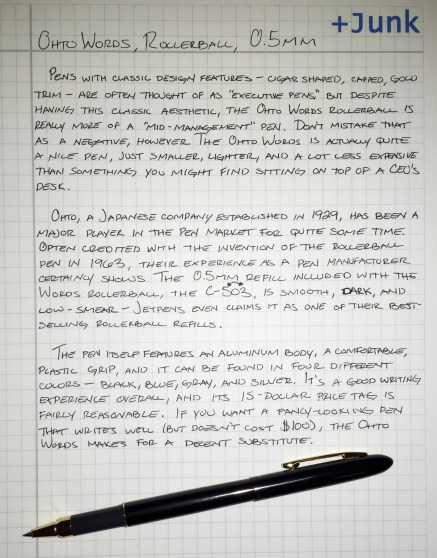 +Junk
Ohto Words, Rollerball, 0.5mm
Pens with classic design features – cigar shaped, capped, gold
trim – are often thought of as "executive pens," but despite
having this classic aesthetic, the Ohto Words Rollerball is
really more of a "mid-management" pen. Don't mistake that
as a negative, however. The Ohto Words is actually quite
a nice pen, just smaller, lighter, and a lot less expensive
than something you might find sitting on top of a CEO's
desk.
Ohto, a Japanese company established in 1929, has been a
major player in the pen market for quite some time.
Often credited with the invention of the rollerball
pen in 1963, their experience as a pen manufacturer
certainly shows. The 0.5mm refill included with the
Words Rollerball, the C-503, is smooth, dark, and
low-smear – Jetpens even claims it as one of their best-
selling rollerball refills.
The pen itself features an aluminum body, a comfortable,
plastic grip, and it can be found in four different
colors – black, blue, gray, and silver. It's a good writing
experience overall, and its 15-dollar price tag is
fairly reasonable. If you want a fancy-looking pen
that writes well (but doesn't cost $100), the Ohto
Words makes for a decent substitute.